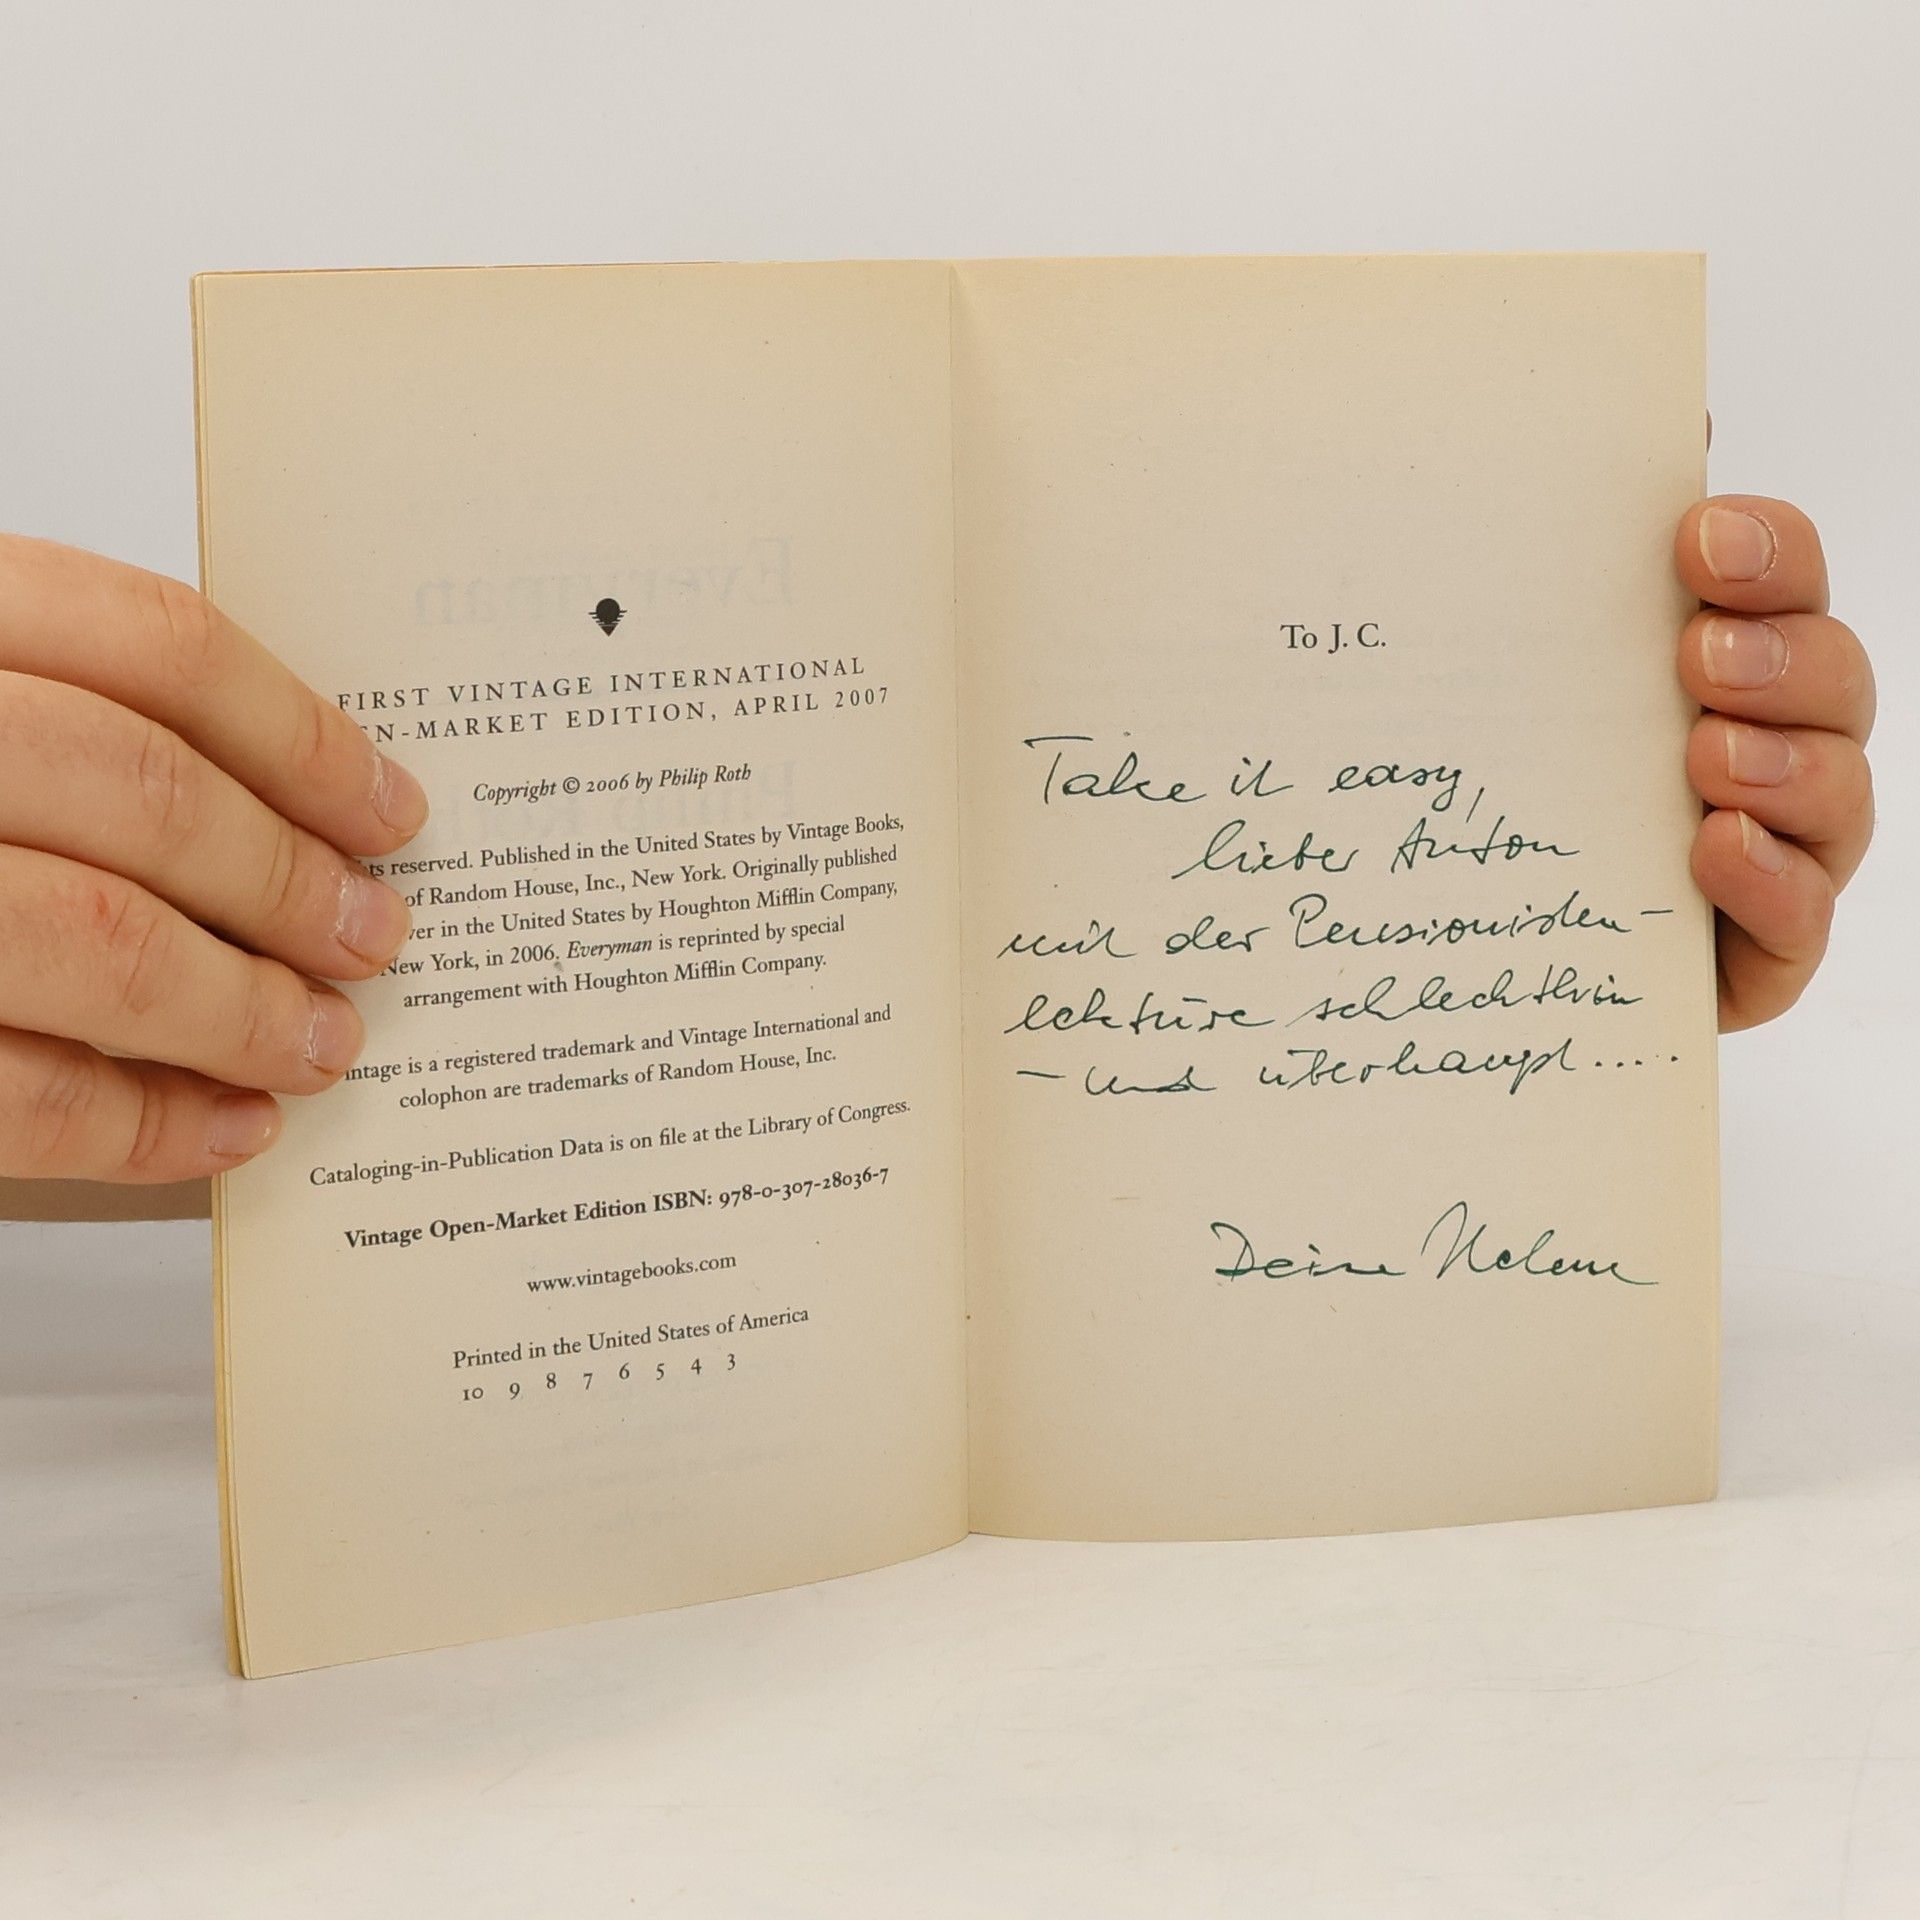 FIRST VINTAGE INTERNATIONAL
EN-MARKET EDITION, APRIL 2007
Copyright © 2006 by Philip Roth
ts reserved. Published in the United States by Vintage Books,
of Random House, Inc., New York. Originally published
ver in the United States by Houghton Mifflin Company,
New York, in 2006. Everyman is reprinted by special
arrangement with Houghton Mifflin Company.
intage is a registered trademark and Vintage International and
colophon are trademarks of Random House, Inc.
Cataloging-in-Publication Data is on file at the Library of Congress.
Vintage Open-Market Edition ISBN: 978-0-307-28036-7
www.vintagebooks.com
Printed in the United States of America
10 9 8 7 6 5 4 3
To J. C.
Take it easy,
lieber Anton
mit der Pensionisten-
lektüre schlechthin
- und überhaupt.....
Deine Helene